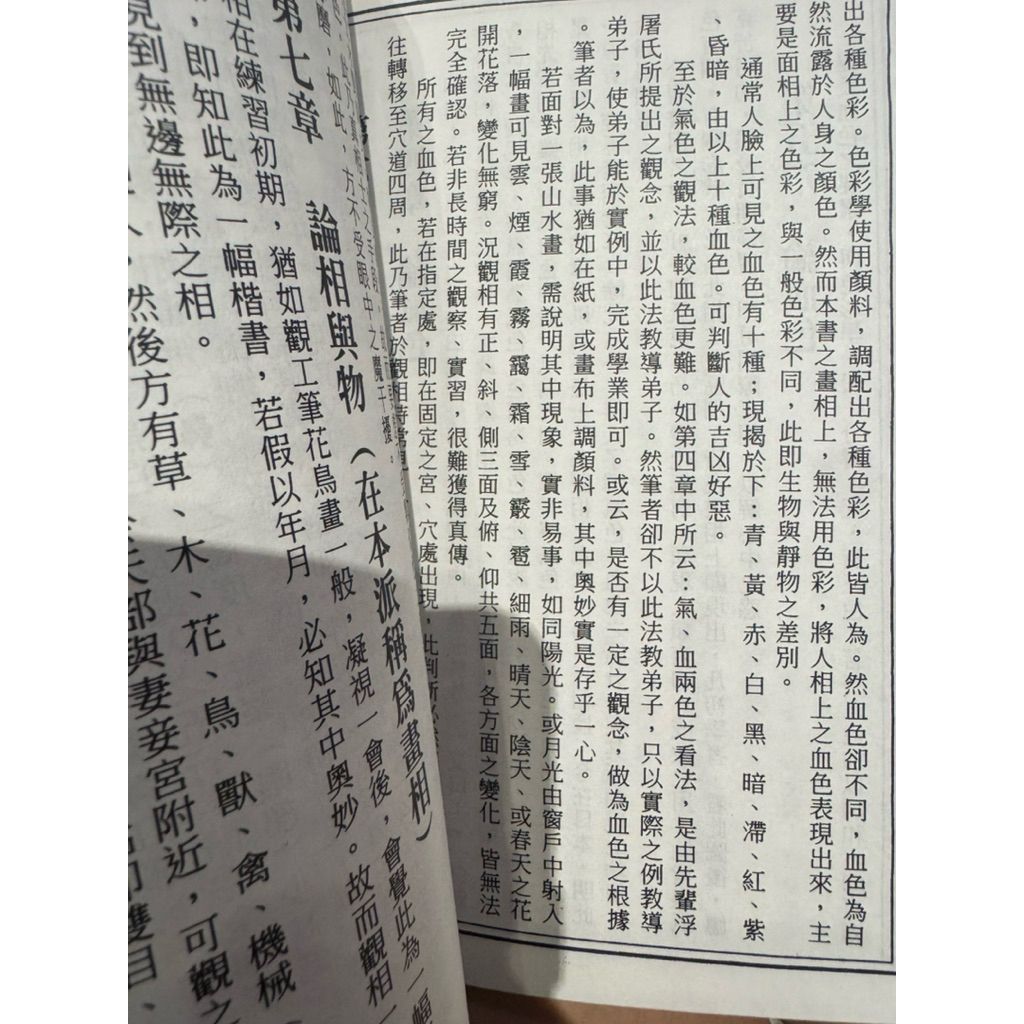 出各種色彩。色彩學使用顏料，調配出各種色彩，此皆人為。然血色卻不同，血色為自
然流露於人身之顏色。然而本書之畫相上，無法用色彩，將人相上之血色表現出來，主
要是面相上之色彩，與一般色彩不同，此即生物與靜物之差別。
通常人臉上可見之血色有十種；現揭於下：青、黃、赤、白、黑、暗、滯、紅、紫
、昏暗，由以上十種血色。可判斷人的吉凶好惡。
至於氣色之觀法，較血色更難。如第四章中所云：氣、血兩色之看法，是由先輩浮
屠氏所提出之觀念，並以此法教導弟子。然筆者卻不以此法教弟子，只以實際之例教導
弟子，使弟子能於實例中，完成學業即可。或云，是否有一定之觀念，做為血色之根據
。筆者以為，此事猶如在紙，或畫布上調顏料，其中奧妙實是存乎一心。
若面對一張山水畫，需說明其中現象，實非易事，如同陽光。或月光由窗戶中射入
，一幅畫可見雲、煙、霞、霧、靄、霜、雪、霰、雹、細雨、晴天、陰天、或春天之花
開花落，變化無窮。況觀相有正、斜、側三面及俯、仰共五面，各方面之變化，皆無法
完全確認。若非長時間之觀察、實習，很難獲得真傳。
所有之血色，若在指定處，即在固定之宮、穴處出現，此判斷
往轉移至穴道四周，此乃筆者於觀相時常
如此，方不受眼中之
第七章　論相與物（在本派稱為畫相）
相在練習初期，猶如觀工筆花鳥畫一般，凝視一會後，會覺此為一幅
，即知此為一幅楷書，若假以年月，必知其中奧妙。故而觀相
見到無邊無際之相。
然後方有草、木、花、鳥、獸、禽、機械
部與妻妾宮附近，可觀之
雙目、